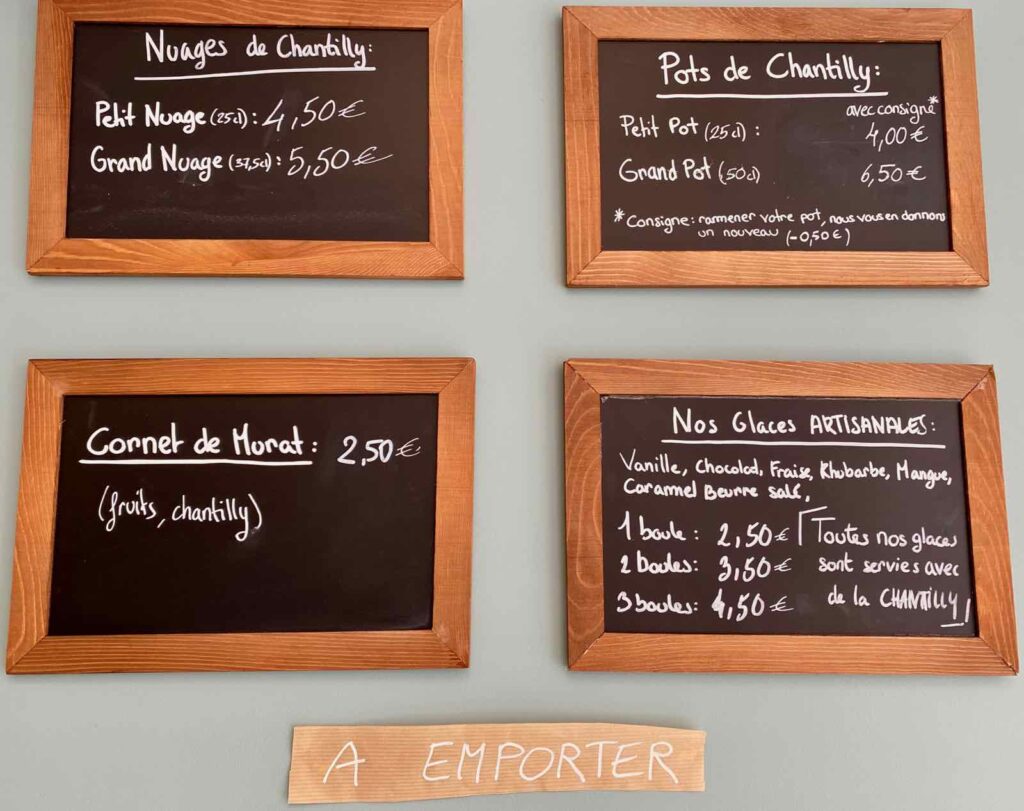 Nuages de Chantilly:
Petit Nuage (25cl) : 4,50 €
Grand Nuage (37,5cl) : 5,50 €
Pots de Chantilly:
avec consigne*
Petit Pot (25cl) : 4,00 €
Grand Pot (50cl) 6,50 €
* Consigne: ramener votre pot, nous vous en donnons
un nouveau (-0,50 €)
Cornet de Murat : 2,50 €
(fruits, chantilly)
Nos Glaces ARTISANALES:
Vanille, Chocolad, Fraise, Rhubarbe, Mangue,
Caramel Beurre salé,
1 boule : 2,50 €
2 boules: 3,50 €
3 boules: 4,50 €
Toutes nos glaces
sont servies avec
de la CHANTILLY
A EMPORTER